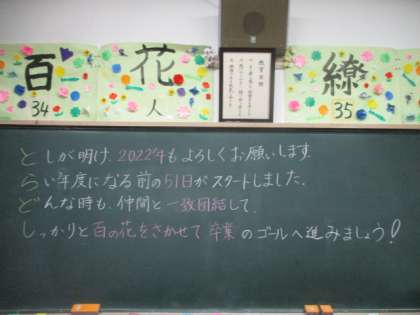 百花繚
34人 35
教育目標
としが明け、2022年もよろしくお願いします。
らい年度になる前の51日がスタートしました。
どんな時も、仲間と一致団結して、
しっかりと百の花をさかせて卒業のゴールへ進みましょう!